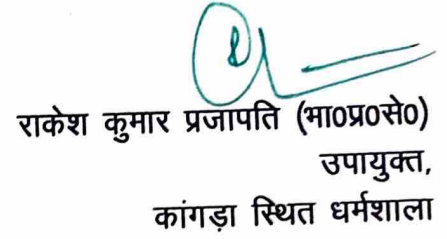 राकेश कुमार प्रजापति (भा०प्र०से०)
उपायुक्त,
कांगड़ा स्थित धर्मशाला